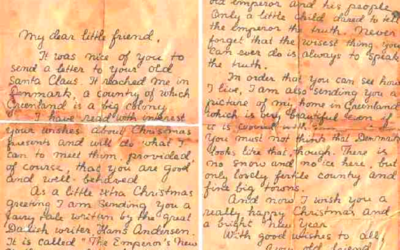 My dear little friend,
It was nice of you to
send a letter to your old
Santa Claus. It reached me in
Denmark, a country of which
Greenland is a big colony.
I have read with interest
your wishes about Christmas
presents and will do what I
can to meet them, provided,
of course, that you are good
and well behaved.
As a little extra Christmas
greeting I am sending you a
fairy tale written by the great
Danish writer, Hans Andersen.
It is called "The Emperor's New
old emperor and his people
Only a little child dared to tell
the emperor the truth. Never
forget that the wisest thing you
can ever do is always to speak
the truth.
In order that you can see how
I live, I am also sending you a
picture of my home in Greenland
which is very beautiful even if
it is covered with
You must not think that Denmark
looks like that, though. There is
no snow and no ice here, but
only lovely fertile country and
fine big towns.
And now I wish you a
really happy Christmas and
a bright New Year
With good wishes to all